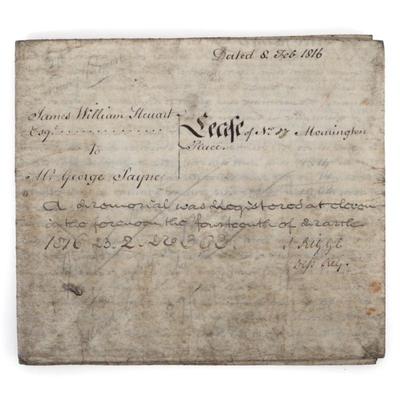 Dated 8 Feb 1816
James William Steuart
Esqr
to
Mr George Payne
Lease of No. 57 Mornington
Place
A Memorial was Registered at eleven
in the forenoon the fourteenth of March
1816 B. 2. No
Depy Reg.